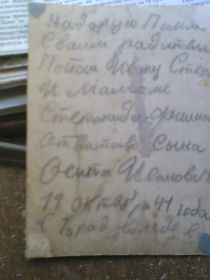 На доргую Памят
Своим радителям
Папаи Ивану Степ
И Мамаше
Степаниде Филип
От Вашево Сына
Осипа Ивановича
19 Октября 41 года
Город